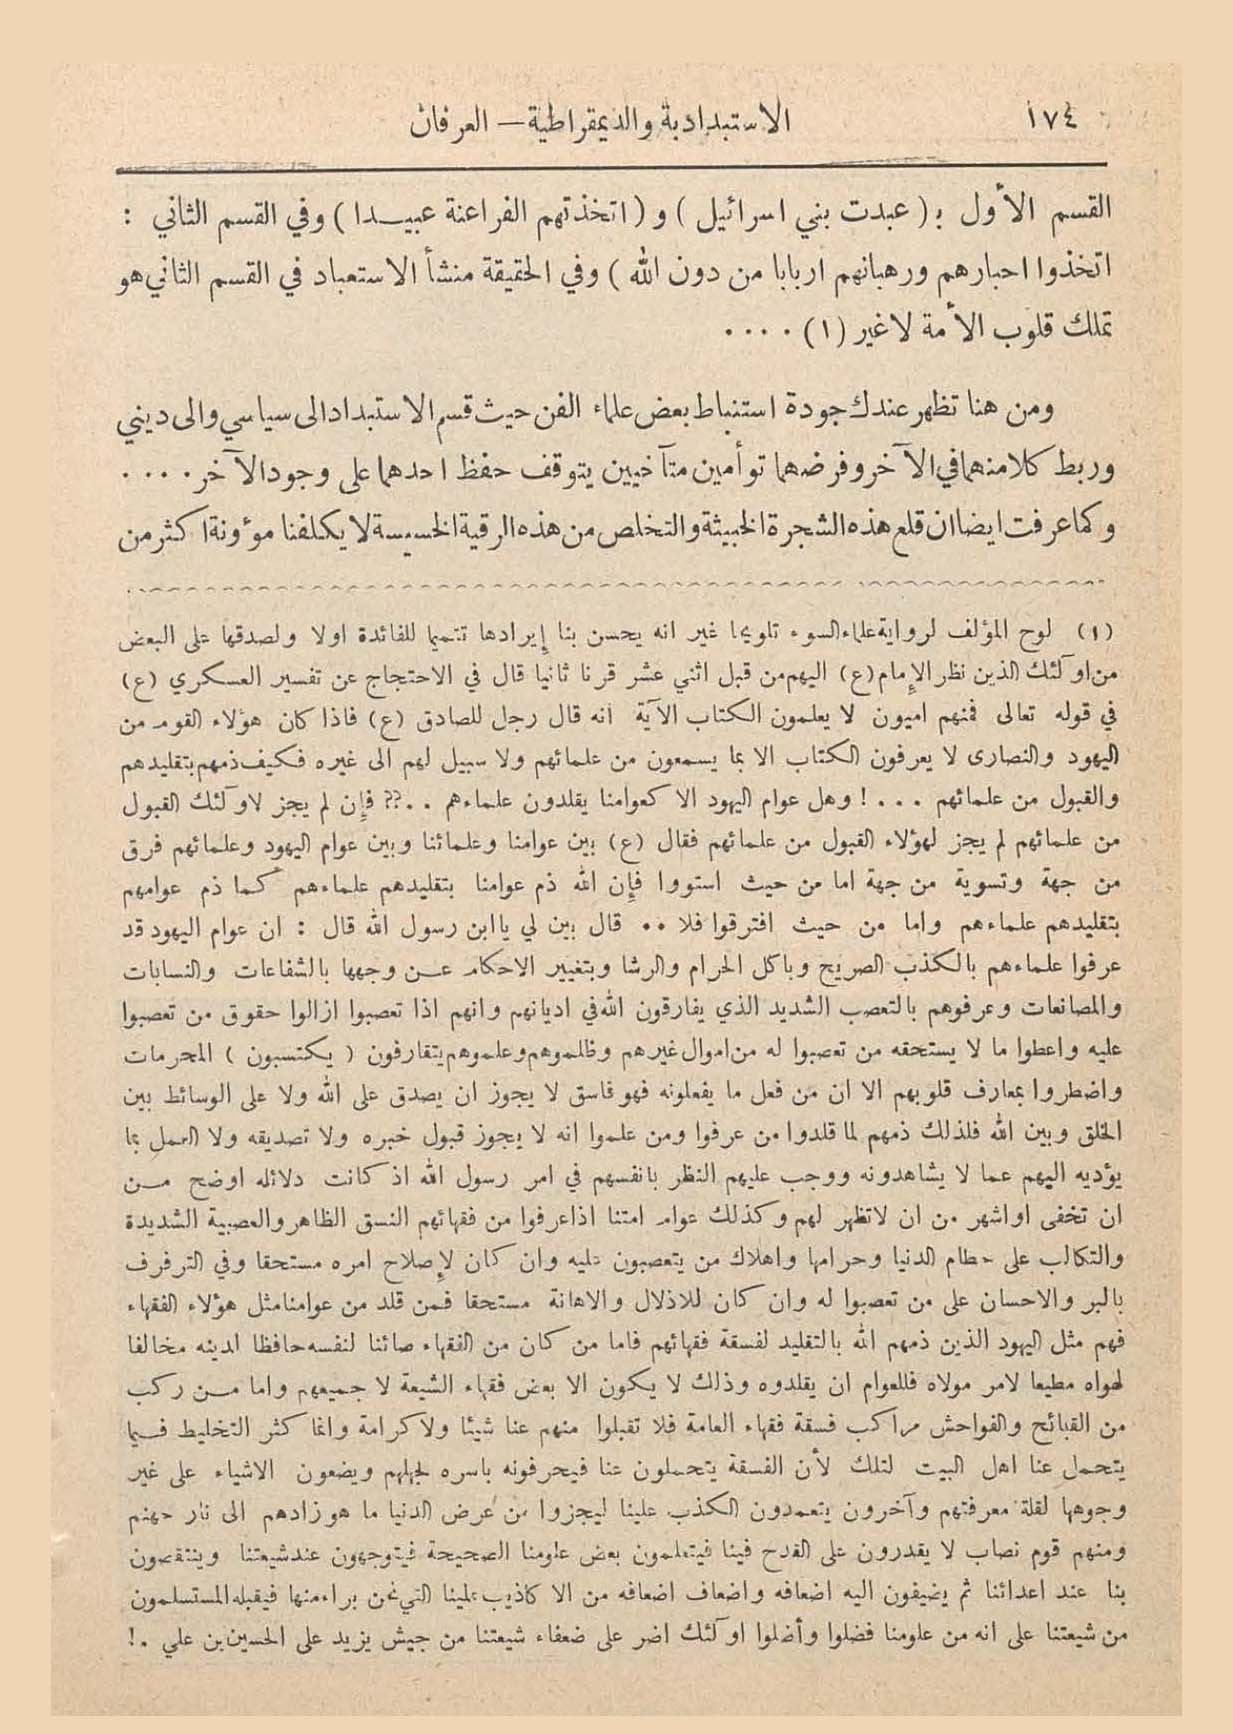 ١٧٤
الاستبدادية والديمقراطية — العرفان
القسم الأول بـ ( عبدت بني اسرائيل ) و ( اتخذتهم الفراعنة عبيـــدا ) وفي القسم الثاني :
اتخذوا احبارهم ورهبانهم اربابا من دون الله ) وفي الحقيقة منشأ الاستعباد في القسم الثاني هو
تملك قلوب الأمة لا غير (١) ٠٠٠٠
ومن هنا تظهر عندك جودة استنباط بعض علماء الفن حيث قسم الاستبداد الى سياسي والى ديني
وربط كلا منهما في الآخر وفرضهما توأمين متآخيين يتوقف حفظ احدهما على وجود الآخر ٠٠٠٠
وكما عرفت ايضا ان قلع هذه الشجرة الخبيثة والتخلص من هذه الرقية الخسيسة لا يكلفنا موؤنة اكثر من
(١) لوح المؤلف لرواية علماء السوء تلويحا غير انه يحسن بنا إيرادها تتميما للفائدة اولا ولصدقها على البعض
من اولئك الذين نظر الإمام (ع) اليهم من قبل اثني عشر قرنا ثانيا قال في الاحتجاج عن تفسير العسكري (ع)
في قوله تعالى فمنهم اميون لا يعلمون الكتاب الآية انه قال رجل للصادق (ع) فاذا كان هؤلاء القوم من
اليهود والنصارى لا يعرفون الكتاب الا بما يسمعون من علمائهم ولا سبيل لهم الى غيره فكيف ذمهم بتقليدهم
والقبول من علمائهم ٠٠٠! وهل عوام اليهود الا كعوامنا يقلدون علماءهم ..؟؟ فإن لم يجز لاولئك القبول
من علمائهم لم يجز لهؤلاء القبول من علمائهم فقال (ع) بين عوامنا وعلمائنا وبين عوام اليهود وعلمائهم فرق
من جهة وتسوية من جهة اما من حيث استووا فإن الله ذم عوامنا بتقليدهم علماءهم كما ذم عوامهم
بتقليدهم علماءهم واما من حيث افترقوا فلا ٠٠ قال بين لي يا ابن رسول الله قال : ان عوام اليهود قد
عرفوا علماءهم بالكذب الصريح وباكل الحرام والرشا وبتغيير الاحكام عــن وجهها بالشفاعات والنسابات
والمصانعات وعرفوهم بالتعصب الشديد الذي يفارقون الله في اديانهم وانهم اذا تعصبوا ازالوا حقوق من تعصبوا
عليه واعطوا ما لا يستحقه من تعصبوا له من اموال غيرهم وظلموهم وعلموهم يتقارفون ( يكتسبون ) المحرمات
واضطروا بمعارف قلوبهم الا ان من فعل ما يفعلونه فهو فاسق لا يجوز ان يصدق على الله ولا على الوسائط بين
الخلق وبين الله فلذلك ذمهم لما قلدوا من عرفوا ومن علموا انه لا يجوز قبول خبره ولا تصديقه ولا العمل بما
يؤديه اليهم عما لا يشاهدونه ووجب عليهم النظر بانفسهم في امر رسول الله اذ كانت دلائله اوضح مــن
ان تخفى او اشهر من ان لا تظهر لهم وكذلك عوام امتنا اذا عرفوا من فقهائهم النسق الظاهر والعصبية الشديدة
والتكالب على حطام الدنيا وحرامها واهلاك من يتعصبون عليه وان كان لإصلاح امره مستحقا وفي الترفرف
بالبر والاحسان على من تعصبوا له وان كان للاذلال والاهانة مستحقا فمن قلد من عوامنا مثل هؤلاء الفقهاء
فهم مثل اليهود الذين ذمهم الله بالتقليد لفسقة فقهائهم فاما من كان من الفقهاء صائنا لنفسه حافظا لدينه مخالفا
لهواه مطيعا لامر مولاه فللعوام ان يقلدوه وذلك لا يكون الا بعض فقهاء الشيعة لا جميعهم واما مــن ركب
من القبائح والفواحش مراكب فسقة فقهاء العامة فلا تقبلوا منهم عنا شيئا ولا كرامة وانما كثر التخليط فــيما
يتحمل عنا اهل البيت لتلك لأن الفسقة يتحملون عنا فيحرفونه باسره لجهلهم ويضعون الاشياء على غير
وجوهها لقلة معرفتهم وآخرون يتعمدون الكذب علينا ليجزوا من عرض الدنيا ما هو زادهم الى نار جهنم
ومنهم قوم نصاب لا يقدرون على القدح فينا فيتعلمون بعض علومنا الصحيحة فيتوجهون عند شيعتنا وينتقصون
بنا عند اعدائنا ثم يضيفون اليه اضعافه واضعاف اضعافه من الاكاذيب علينا التي نحن براء منها فيقبله المستسلمون
من شيعتنا على انه من علومنا فضلوا وأضلوا اولئك اضر على ضعفاء شيعتنا من جيش يزيد على الحسين بن علي ٠!